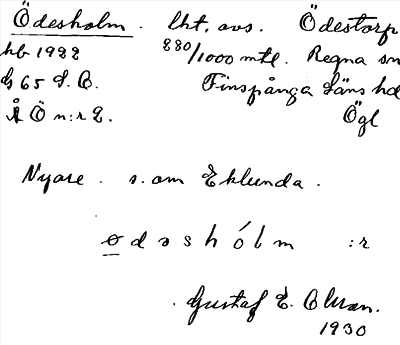 Ödesholm. lht. avs. Ödestorp
hb 1922 280/1000 mtl. Regna sn
ds 65 S. B. Finspånga läns hd
Å Ö n:r 2. Ögl
Nyare. s. om Eklunda.
ödəshólm :r
Gustaf E.
1930